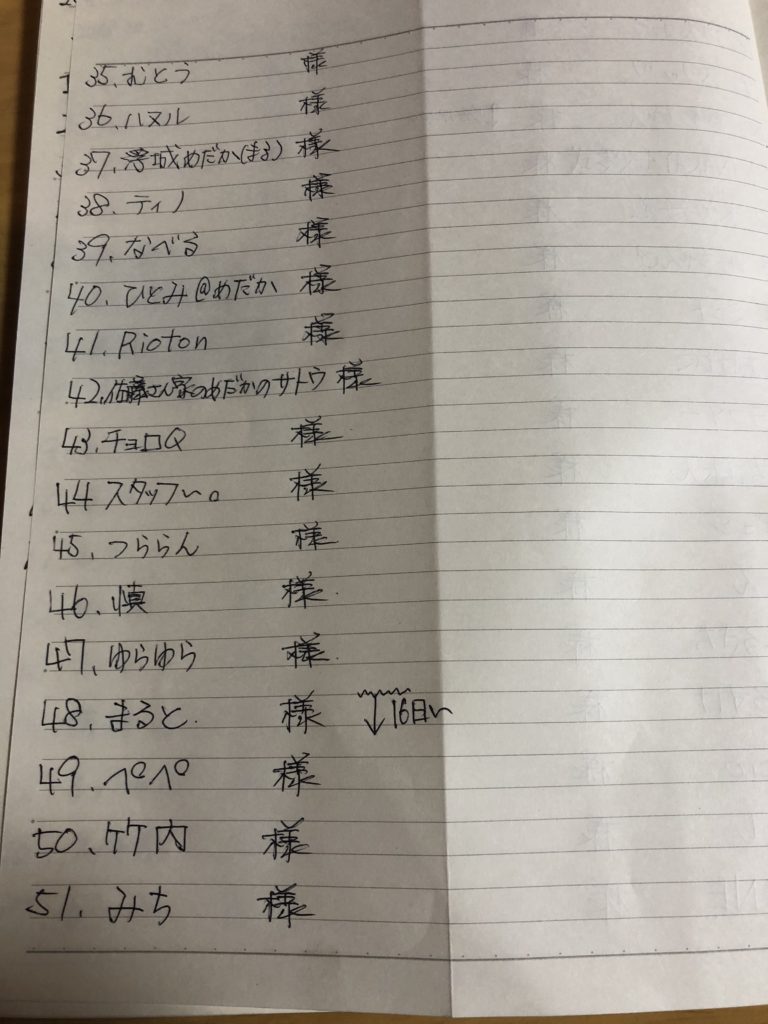 35.むとう 様
36.ハヌル 様
37.澪城めだか(まる) 様
38.ティノ 様
39.なべる 様
40.ひとみ@めだか 様
41.Rioton 様
42.佐藤さん家のめだかのサトウ 様
43.チョロQ 様
44 スタッフぃ。 様
45.つららん 様
46.慎 様
47.ゆらゆら 様
48.まると. 様 ↓16日〜
49.ペペ 様
50.竹内 様
51.みち 様